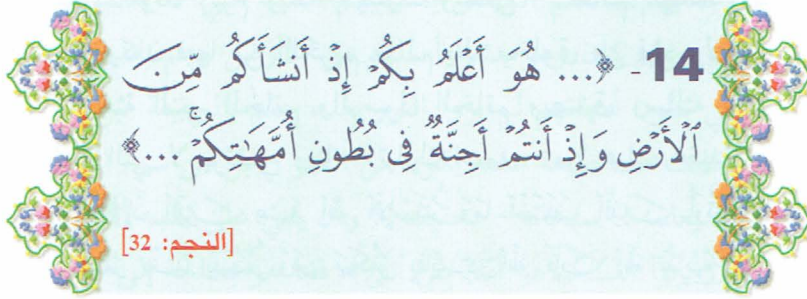 14- ﴿... هُوَ أَعْلَمُ بِكُمْ إِذْ أَنشَأَكُم مِّنَ
ٱلْأَرْضِ وَإِذْ أَنتُمْ أَجِنَّةٌ فِى بُطُونِ أُمَّهَٰتِكُمْ ۚ ...﴾
[النجم: 32]